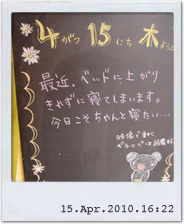 4がつ15にち木ようび
最近、ベッドに上がり
きれずに寝てしまいます。
今日こそちゃんと寝たい…
15.Apr.2010.16:22